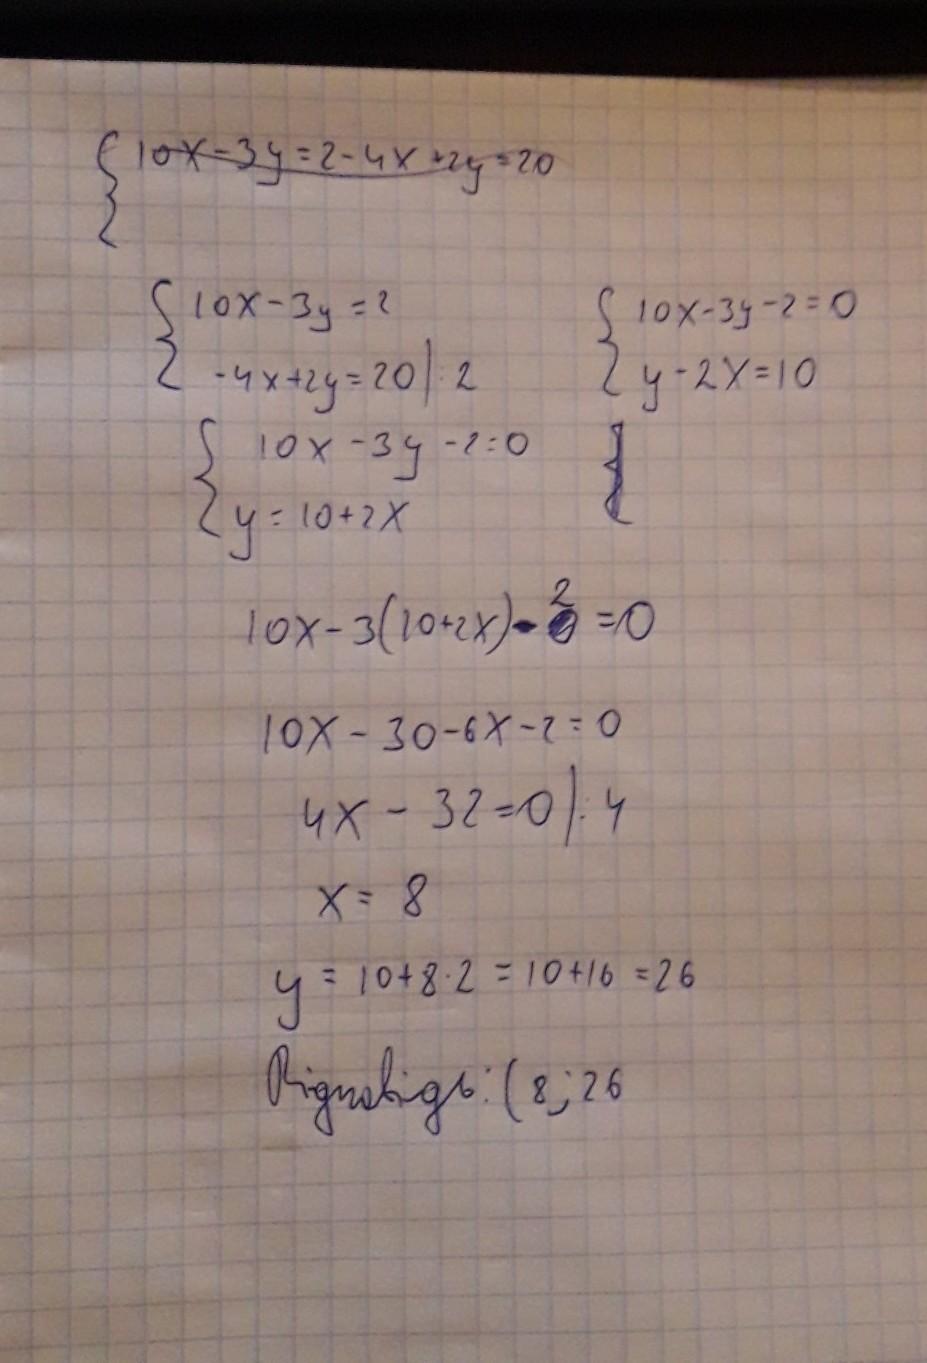 {10x-3y=2-4x+2y=20
{10x-3y=2
-4x+2y=20|:2
{10x-3y-2=0
y-2x=10
{10x-3y-2=0
y=10+2x
10x-3(10+2x)-2=0
10x-30-6x-2=0
4x-32=0|:4
x=8
y=10+8·2=10+16=26
Відповідь: (8;26